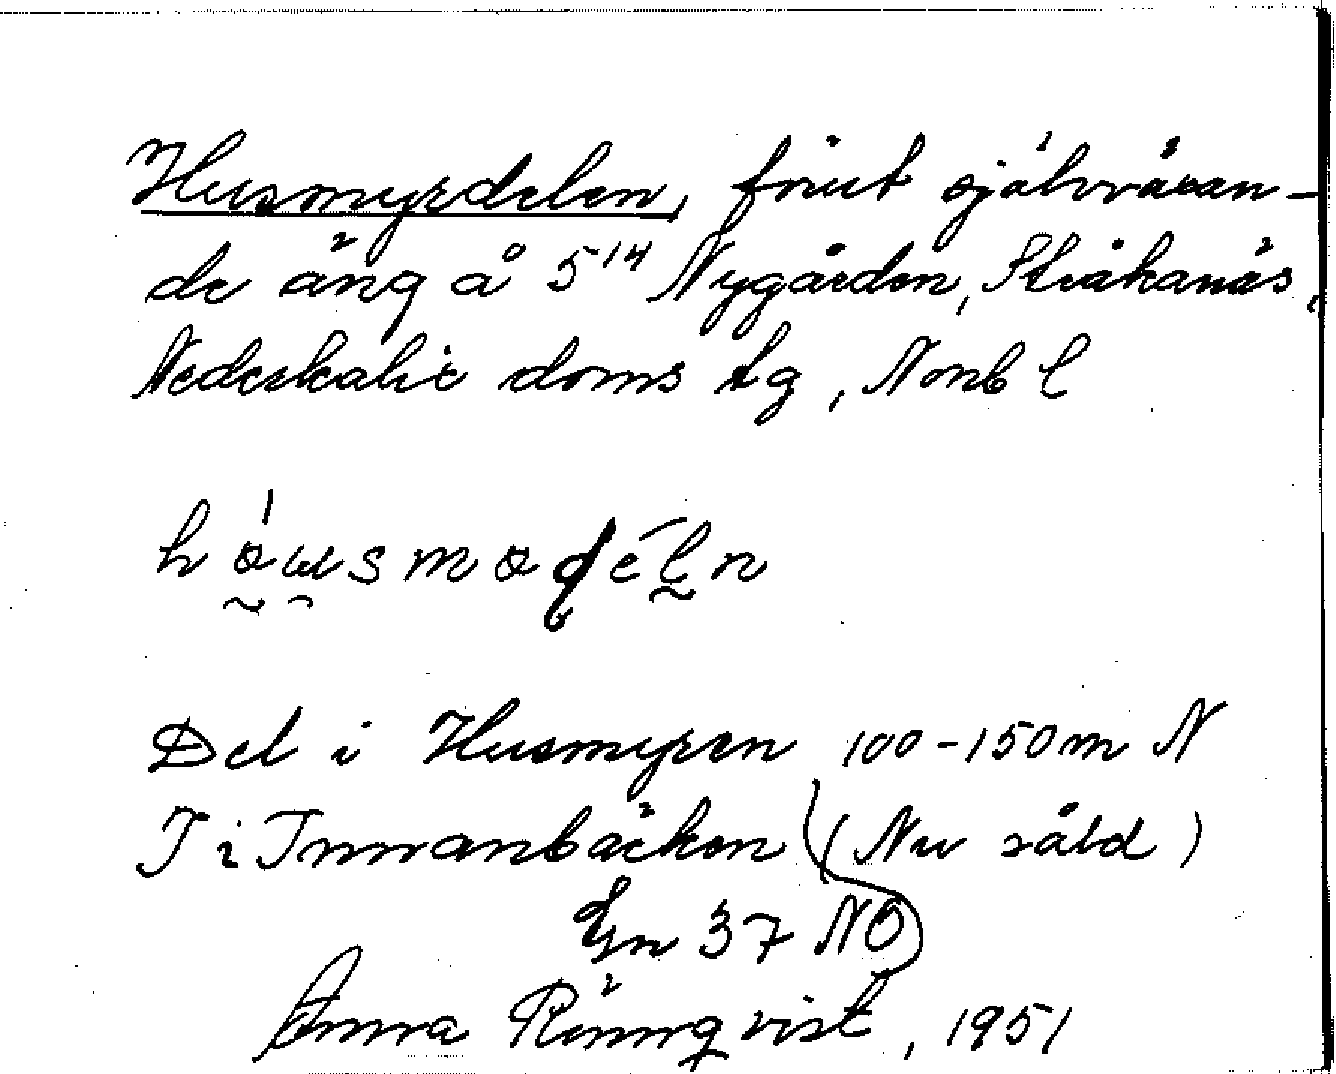 Husmyrdelen, förut självväxan-
de äng å 5¹⁴ Nygården, Stråkanäs,
Nederkalix doms tg, Norrb l
Del i Husmyren 100-150 m N
I i Innanbäcken (Nu såld)
Gn 37 NO
Anna Rönnqvist, 1951